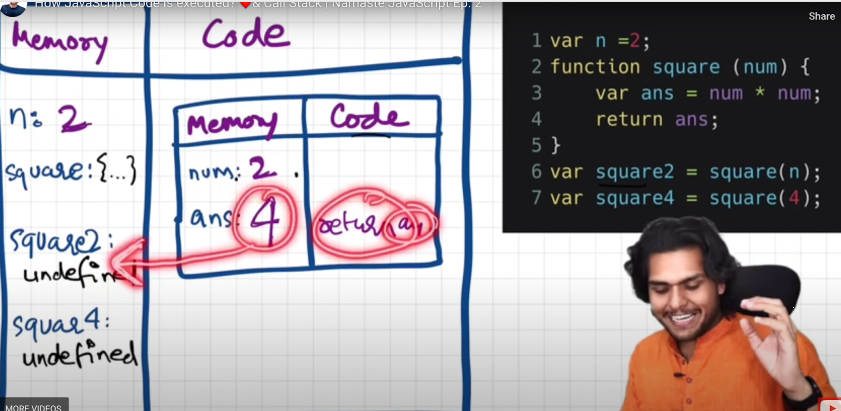 How JavaScript Code is executed? ❤️& Call Stack | Namaste JavaScript Ep. 2
Share
Memory
Code
n: 2
square:{...}
square2:
undefined
squar4:
undefined
Memory
Code
num: 2
ans: 4
return an
1 var n =2;
2 function square (num) {
3 var ans = num * num;
4 return ans;
5 }
6 var square2 = square(n);
7 var square4 = square(4);
MORE VIDEOS